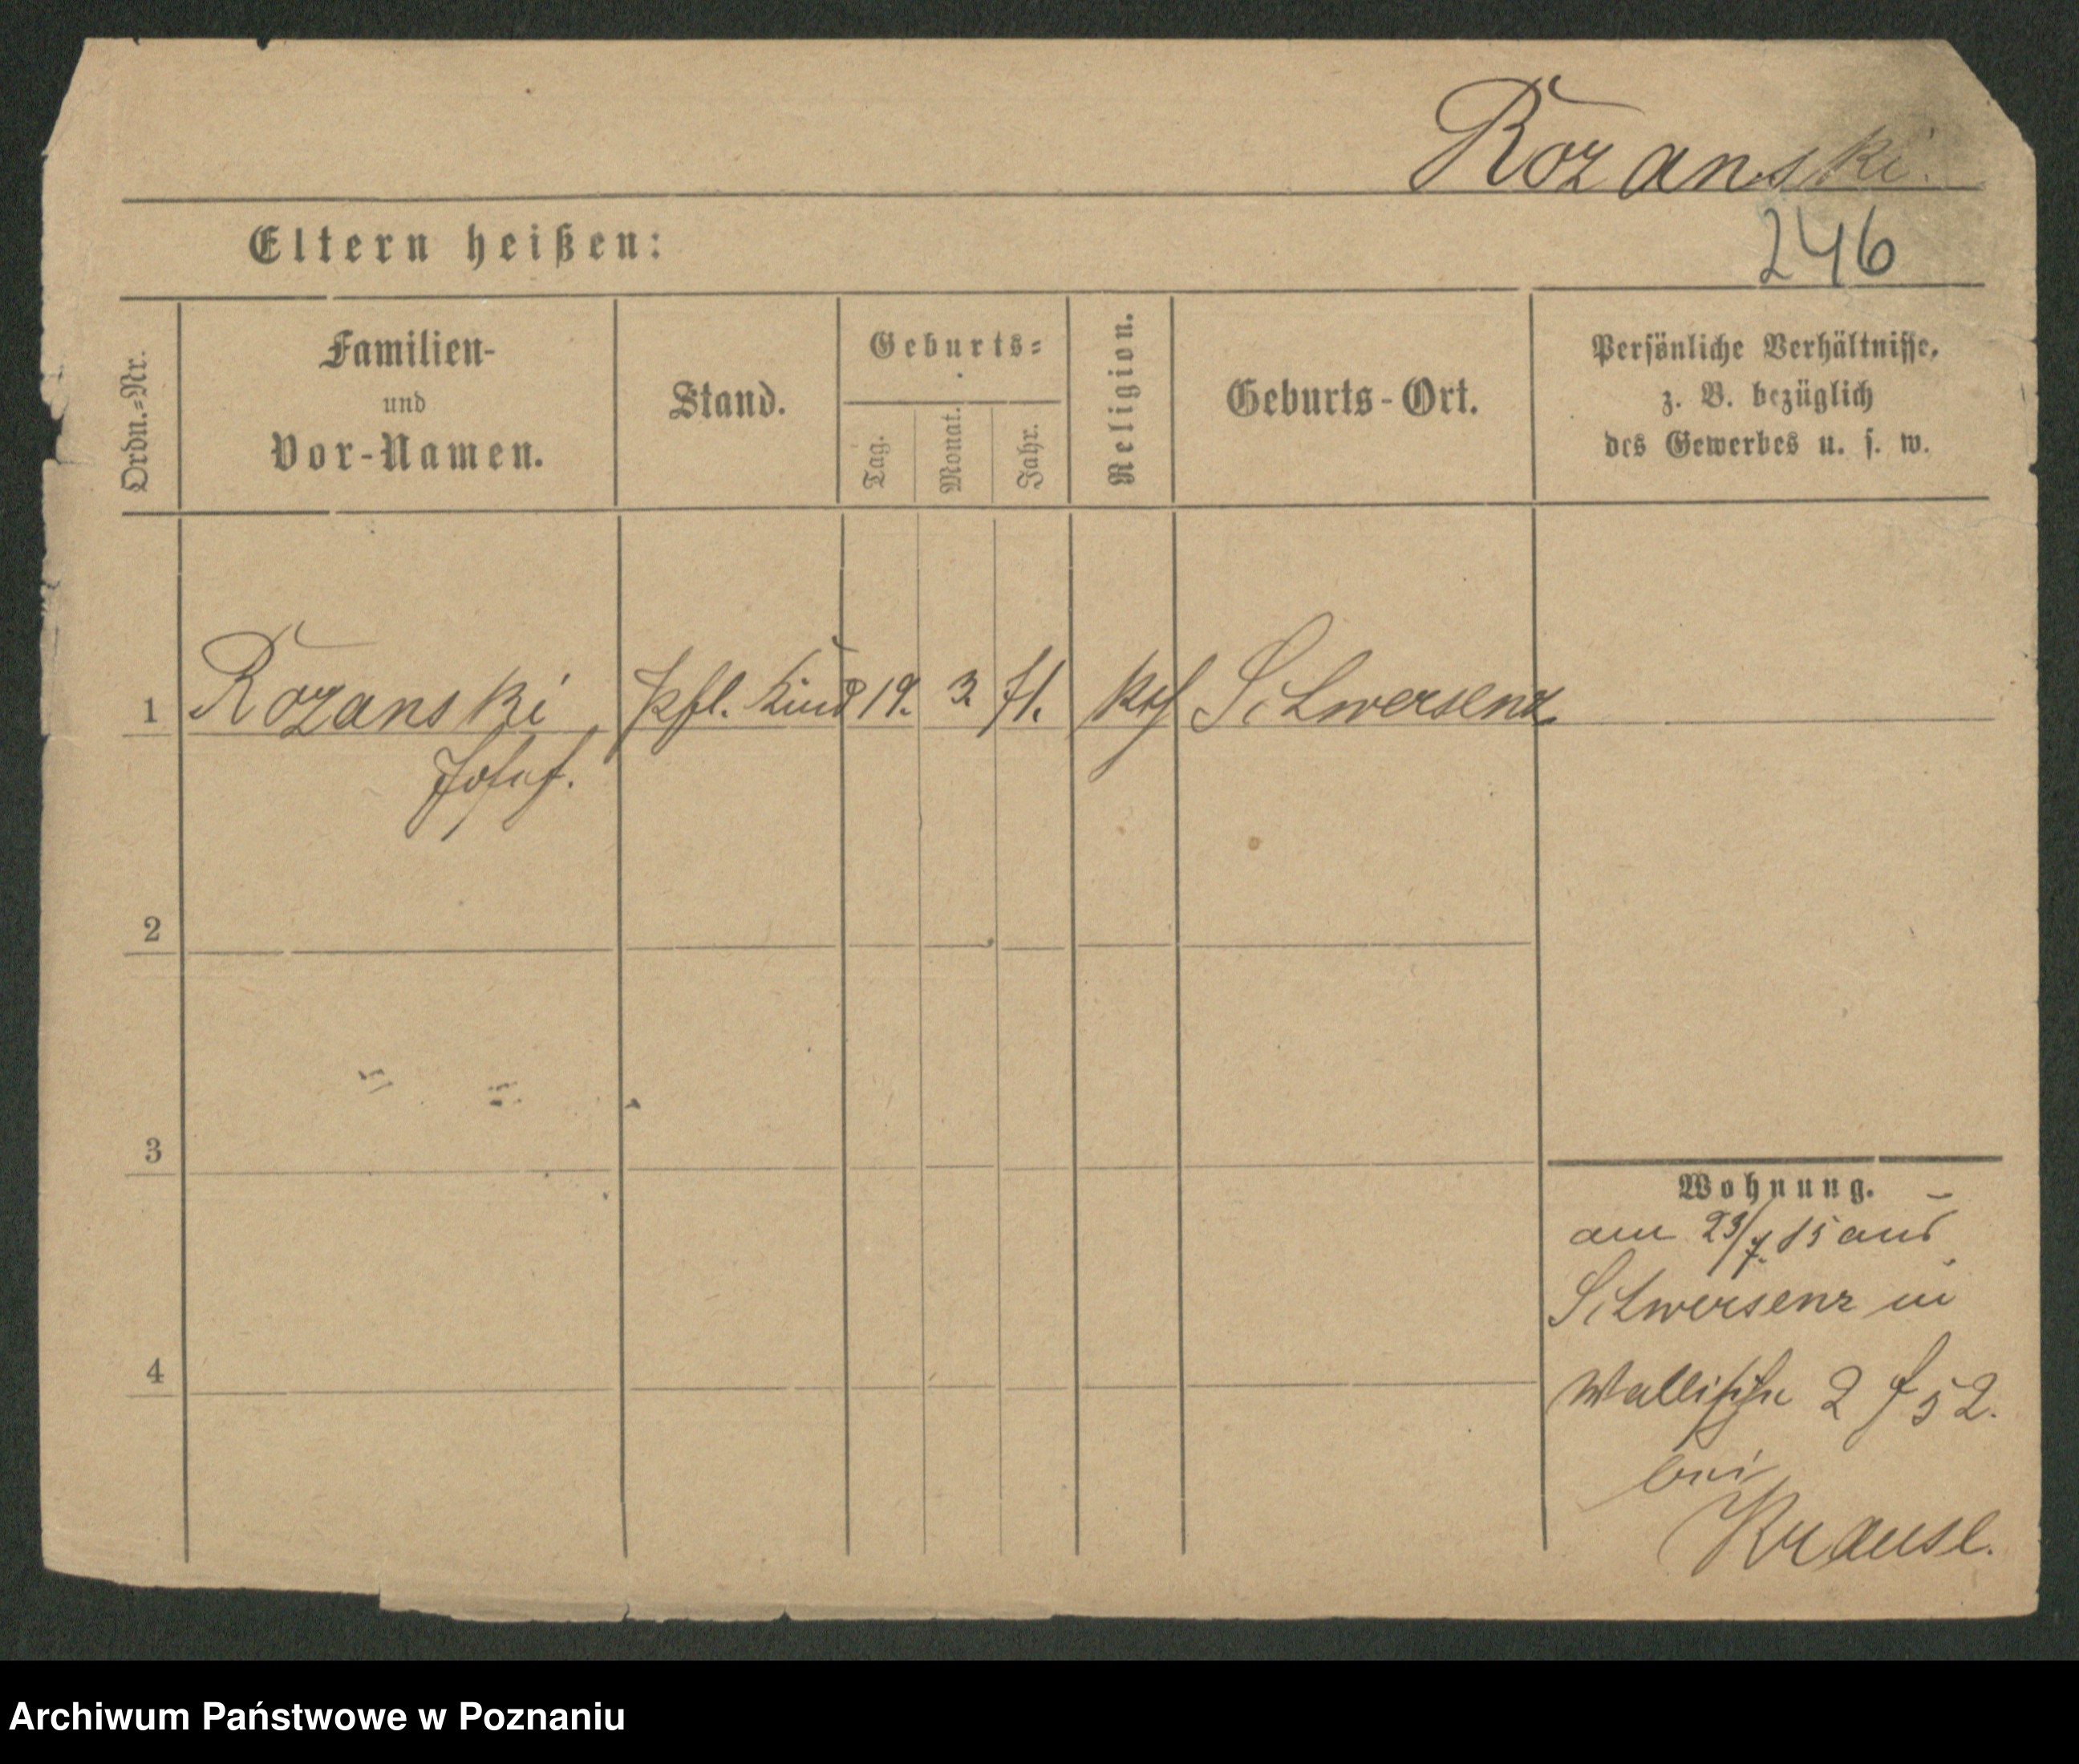 Rozanski.
246
Eltern heißen:
Ordn.=Nr.
Familien-
und
Vor-Namen.
Stand.
Geburts=
Tag.
Monat.
Jahr.
Religion.
Geburts-Ort.
Persönliche Verhältnisse,
z. B. bezüglich
des Gewerbes u. s. w.
1 Rozanski pfl. Kind 19. 3. 71. kth Schwersenz.
Josef.
2
3
4
Wohnung.
am 23/7. 85 aus
Schwersenz in
Wallische 2 f 52.
bei
Krause.
Archiwum Państwowe w Poznaniu